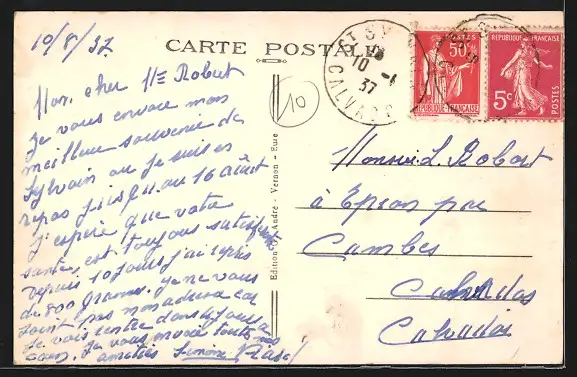 10/8/37
CARTE POSTALE
Mon cher Mr Robert
Je vous envoie mon
meilleur souvenir de
Sylvain ou je suis en
repos jusqu'au 16 août
J'espère que votre
santé est toujours satisfesente
Depuis 10 jours j'ai repris
de 800 grammes. Je ne vous
Je vois rentre dans
Je vous envoie toutes mes
amitiés Simone
10
Edition G. André - Vernon - Eure
10 -
37
CALVADOS
POSTES
50c
REPUBLIQUE FRANÇAISE
REPUBLIQUE FRANÇAISE
5c
POSTES
Monsieur L. Robert
à Epron par
Cambes
Calvados
Calvados